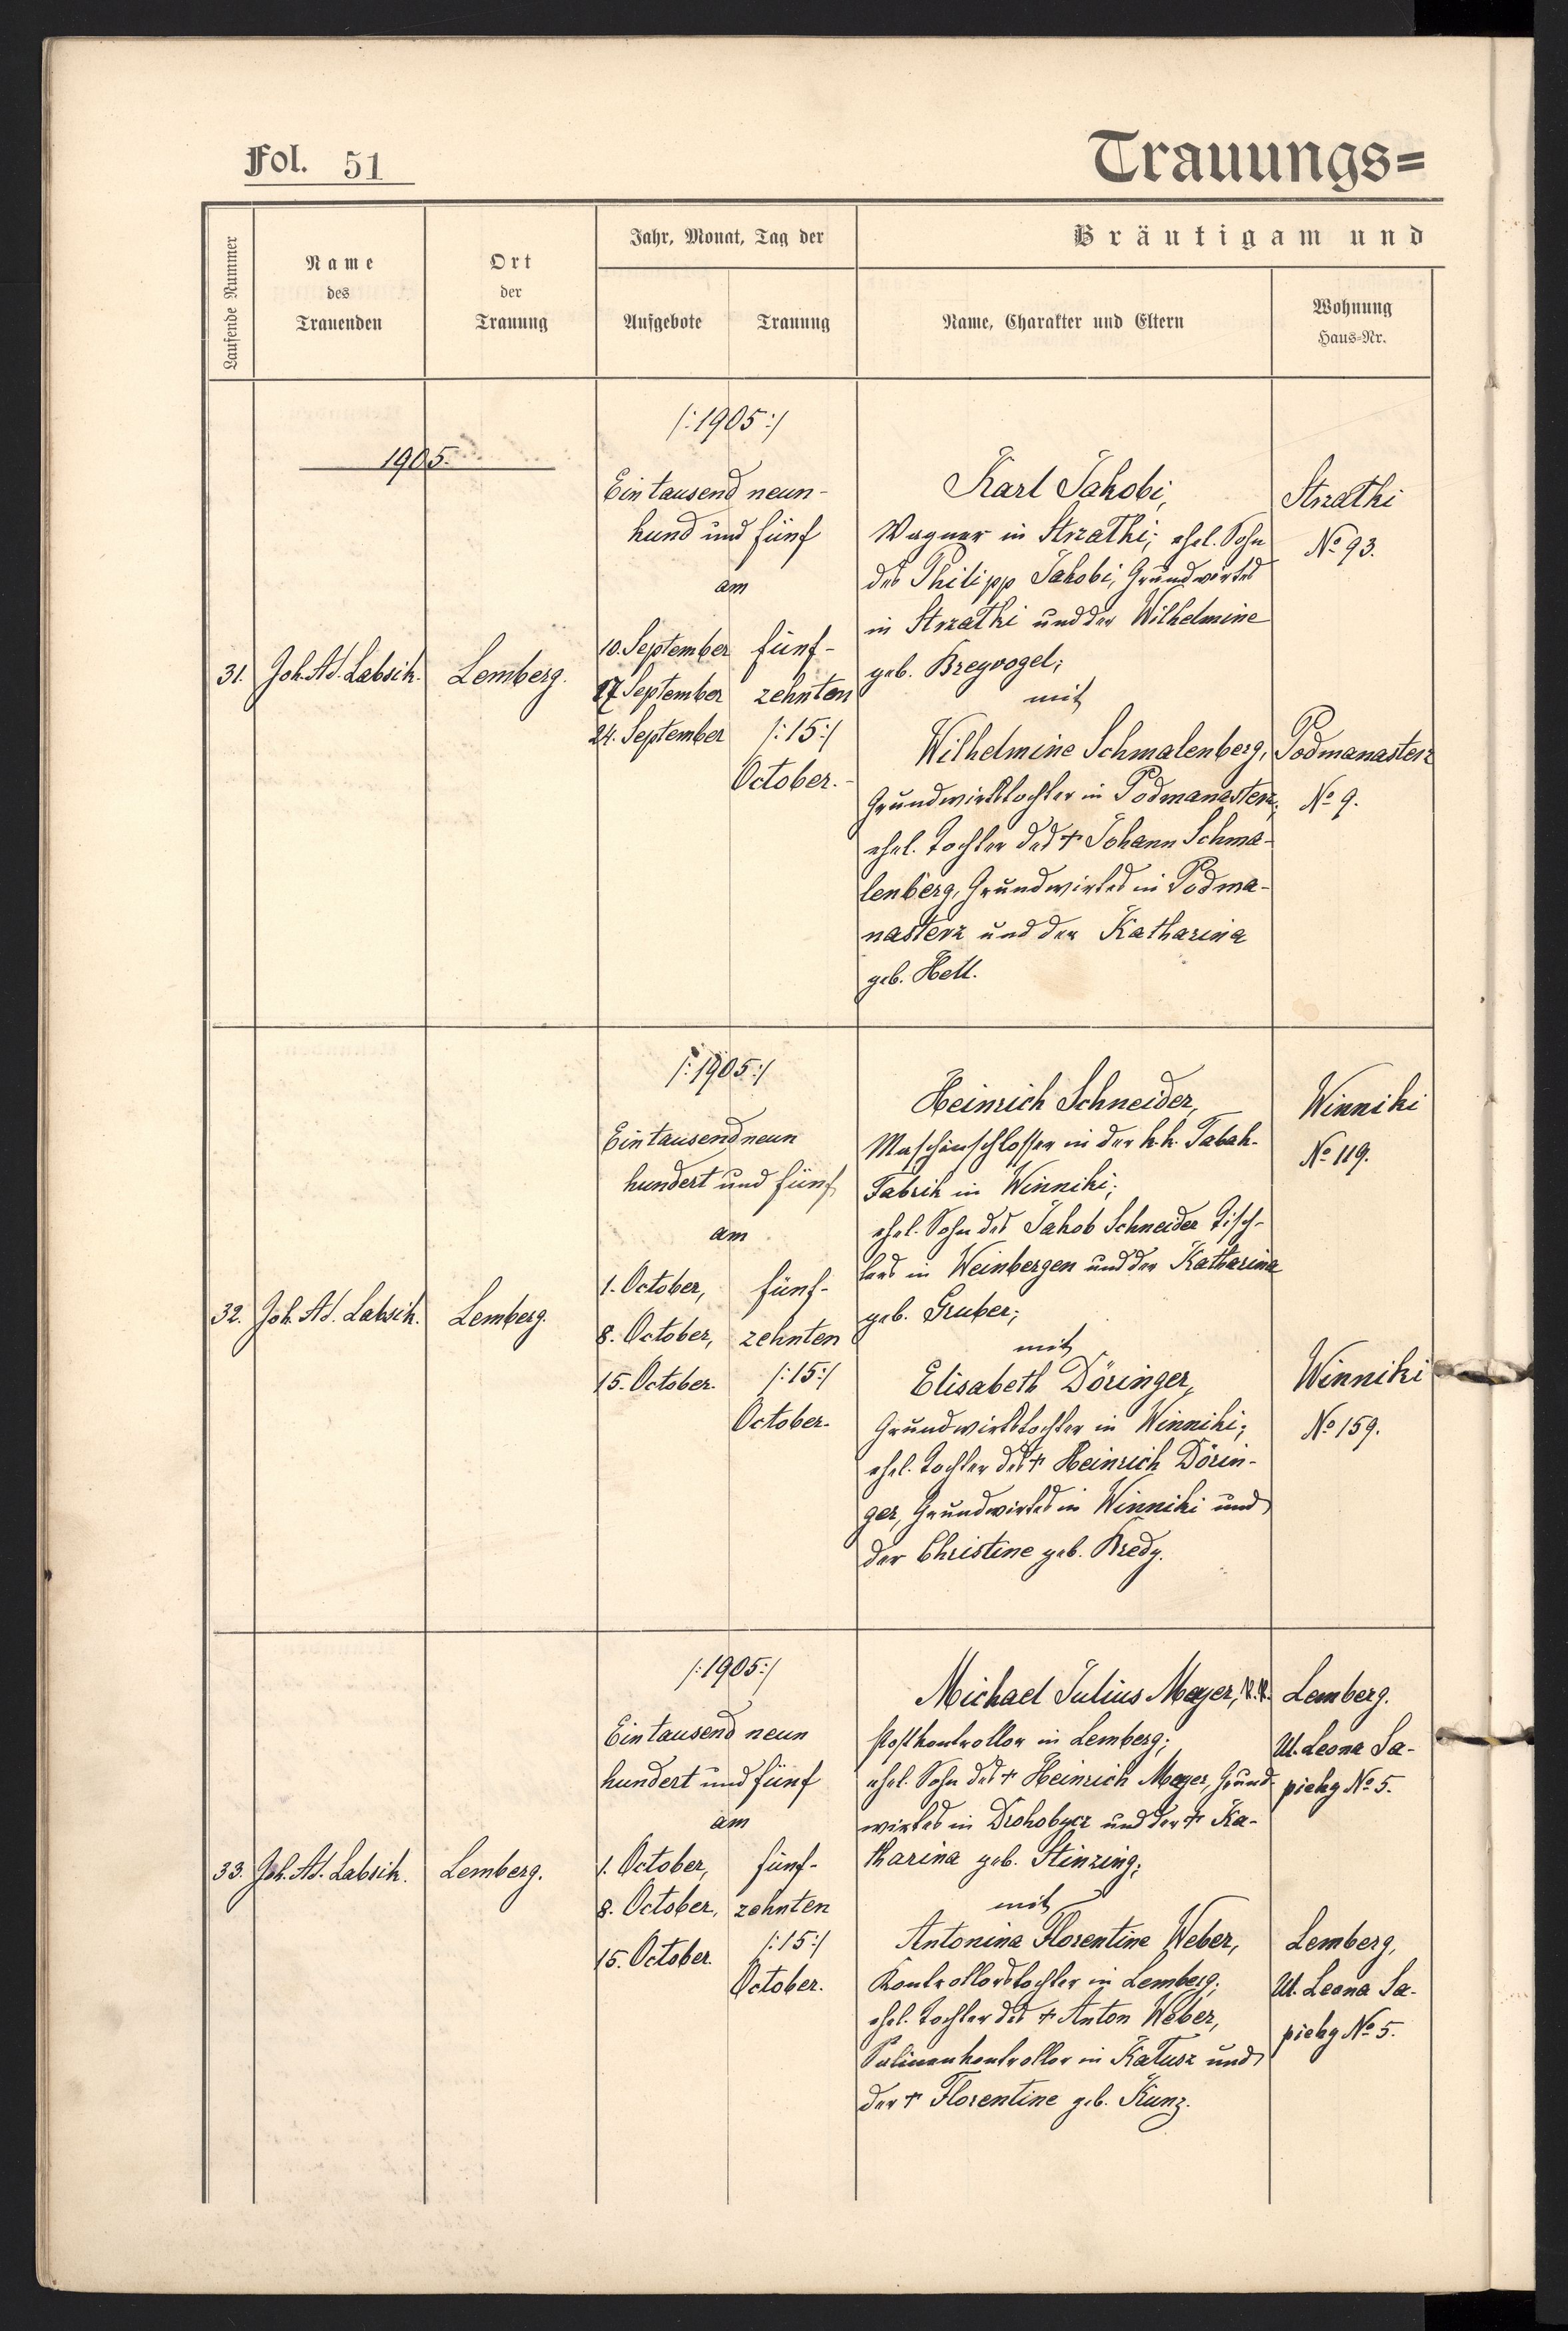 Fol. 51
Trauungs=
Laufende Nummer
Name
des
Trauenden
Ort
der
Trauung
Jahr, Monat, Tag der
Aufgebote
Trauung
Bräutigam und
Name, Charakter und Eltern
Wohnung
Haus=Nr.
1905.
31.
Joh. Ad. Labsik.
Lemberg.
/:1905:/
Ein tausend neun-
hund und fünf
am
10. September
17. September
24. September
fünf-
zehnten
/:15:/
October.-
Karl Jakobi,
Wagner in Strzałki; ehel. Sohn
des Philipp Jakobi, Grundwirtes
in Strzałki und der Wilhelmine
geb. Breyvogel;
mit
Wilhelmine Schmalenberg,
Grundwirtstochter in Podmanasterz;
ehel. Tochter des + Johann Schma-
lenberg, Grundwirtes in Podma-
nasterz und der Katharina
geb. Hell.
Strzałki
No 93.
Podmanasterz
No 9.
32.
Joh. Ad. Labsik.
Lemberg.
/:1905:/
Ein tausend neun
hundert und fünf
am
1. October,
8. October,
15. October.
fünf-
zehnten
/:15:/
October.
Heinrich Schneider,
Maschinschlosser in der k. k. Tabak-
Fabrik in Winniki;
ehel. Sohn des Jakob Schneider Tisch-
lers in Weinbergen und der Katharina
geb. Gruber;
mit
Elisabeth Döringer,
Grundwirtstochter in Winniki;
ehel. Tochter des + Heinrich Dörin-
ger, Grundwirtes in Winniki und
der Christine geb. Bredy.
Winniki
No 119.
Winniki
No 159.
33.
Joh. Ad. Labsik.
Lemberg.
/:1905:/
Ein tausend neun
hundert und fünf
am
1. October,
8. October,
15. October.
fünf-
zehnten
/:15:/
October.
Michael Julius Meyer, k. k.
Postkontrollor in Lemberg;
ehel. Sohn des + Heinrich Meyer, Grund-
wirtes in Drohobycz und der + Ka-
tharina geb. Stinzing;
mit
Antonina Florentine Weber,
Kontrollorstochter in Lemberg;
ehel. Tochter des + Anton Weber,
Salinenkontrollor in Kałusz und
der + Florentine geb. Kunz.
Lemberg.
Ul. Leona Sa-
piehy No 5.
Lemberg,
Ul. Leona Sa-
piehy No 5.